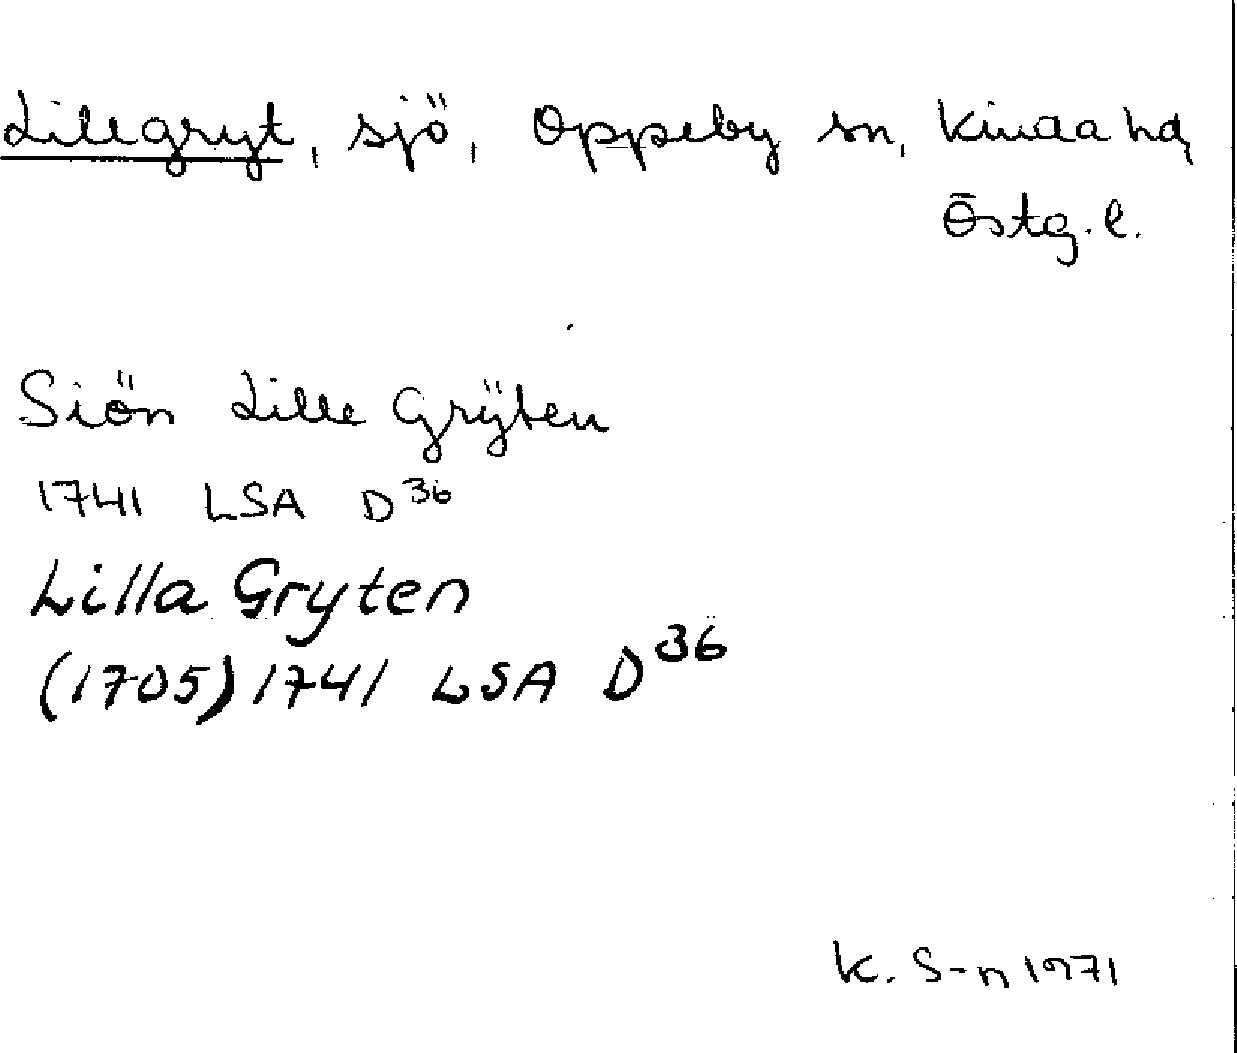 Lillegryt, sjö, Oppeby sn, Kinda hd,
Östg. l.
Siön Lille Grÿten
1741 LSA D 36
Lilla Gryten
(1705) 1741 LSA D 36
K. S-n 1971